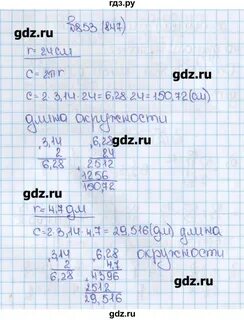 gdz.ru
№853 (847)
gdz.ru gdz.ru
r = 24 см
C = 2πr
C = 2·3,14·24 = 6,28·24 = 150,72 (см)
gdz.ru gdz.ru
длина окружности
3,14 6,28
2 24
6,28 2512
1256
150,72
gdz.ru gdz.ru
r = 4,7 дм
C = 2·3,14·4,7 = 29,516 (дм) длина
3,14 6,28 окружности
2 4,7
6,28 4396
2512
29,516
gdz.ru gdz.ru